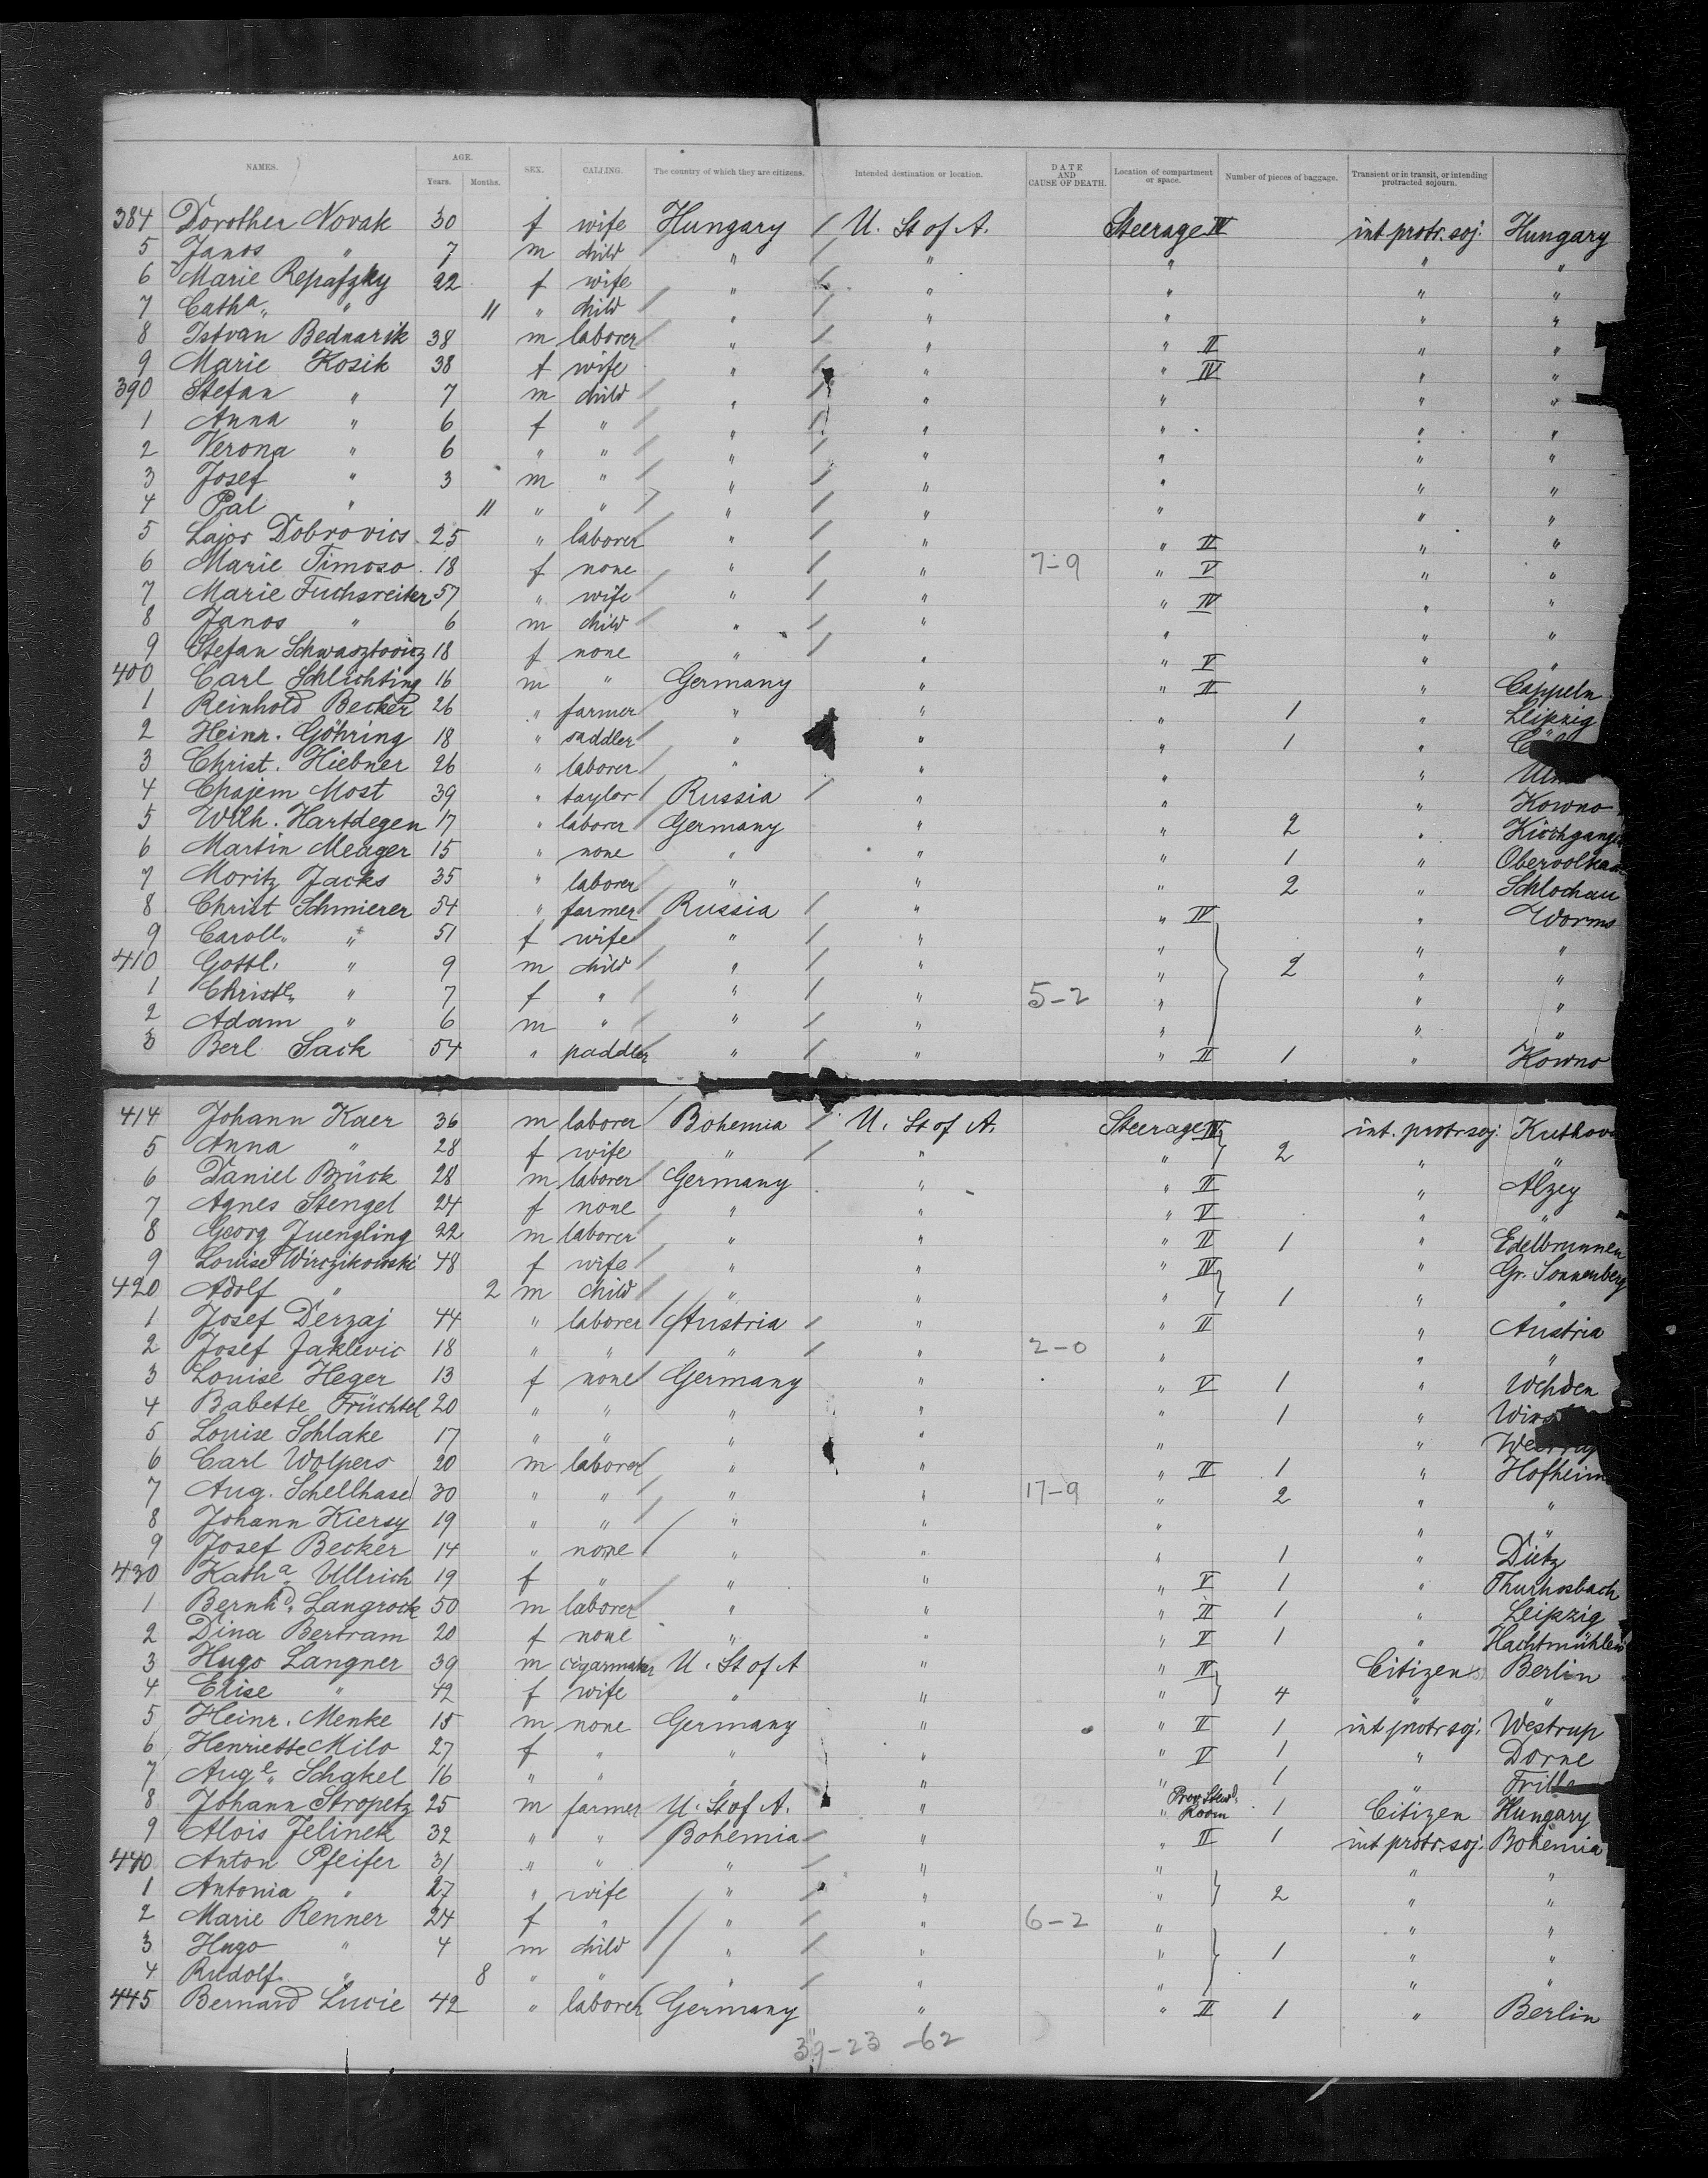 NAMES. AGE. Years. Months. SEX. CALLING. The country of which they are citizens. Intended destination or location. DATE AND CAUSE OF DEATH. Location of compartment or space. Number of pieces of baggage. Transient or in transit, or intending protracted sojourn.
384 Dorother Novak 30 f wife Hungary / U. St of A. Steerage IV int protr. soj. Hungary
5 Janos " 7 m child " " " " "
6 Marie Repafzky 22 f wife " " " " "
7 Cath^a " 11 " child " / " " " "
8 Istvan Bednarik 38 m laborer " / " " II " "
9 Marie Kosik 38 f wife " / " " IV " "
390 Stefan " 7 m child " / " " " "
1 Anna " 6 f " " / " " " "
2 Verona " 6 " " " / " " " "
3 Josef " 3 m " " / " " " "
4 Pal " 11 " " " / " " " "
5 Lajos Dobrovics 25 " laborer " / " " II " "
6 Marie Timoso 18 f none " / " 7-9 " V " "
7 Marie Fuchsreiter 57 " wife " / " " IV " "
8 Janos " 6 m child " / " " " "
9 Stefan Schwasztovicz 18 f none " / " " V " "
400 Carl Schlichting 16 m " Germany " " II " Cappeln
1 Reinhold Becker 26 " farmer " " " 1 " Leipzig
2 Heinr. Göhring 18 " saddler " " " 1 "
3 Christ. Hiebner 26 " laborer " " " "
4 Chajem Most 39 " taylor Russia / " " " Kowno
5 Wilh. Hartdegen 17 " laborer Germany " " 2 "
6 Martin Meager 15 " none " " " 1 "
7 Moritz Jacks 35 " laborer " " " 2 " Schlochau
8 Christ Schmierer 54 " farmer Russia / " " IV " Worms
9 Caroll. " 51 f wife " / " " " "
410 Gottl. " 9 m child " / " " 2 " "
1 Christe " 7 f " " / " 5-2 " " "
2 Adam " 6 m " " / " " " "
3 Berl Sack 54 " paddler " / " " II 1 " Kowno
414 Johann Kaer 36 m laborer Bohemia / U. St of A. Steerage IV int. protr soj.
5 Anna " 28 f wife " / " " 2 " "
6 Daniel Brück 28 m laborer Germany " " II " Alzey
7 Agnes Stengel 24 f none " " " V " "
8 Georg Juengling 22 m laborer " " " II 1 " Edelbrunnen
9 Louise Wirczikowski 48 f wife " " " IV " Gr. Sonnenberg
420 Adolf " 2 m child " " " 1 " "
1 Josef Derzaj 44 " laborer Austria / " " II " Austria
2 Josef Jaklevic 18 " " " / " 2-0 " " "
3 Louise Heger 13 f none Germany " " V 1 " Wehden
4 Babette Früchtel 20 " " " " " 1 "
5 Louise Schlake 17 " " " " " "
6 Carl Wolpers 20 m laborer " " " II 1 " Hofheim
7 Aug. Schellhase 30 " " " " 17-9 " 2 " "
8 Johann Kiersy 19 " " " " " " "
9 Josef Becker 14 " none " " " 1 " Dietz
430 Kath^a Ullrich 19 f " " " " V 1 " Thurhosbach
1 Bernh^d. Langrock 50 m laborer " " " II 1 " Leipzig
2 Dina Bertram 20 f none " " " V 1 " Hachtmühlen
3 Hugo Langner 39 m cigarmaker U. St of A " " IV Citizen Berlin
4 Elise " 42 f wife " " " 4 " "
5 Heinr. Menke 15 m none Germany " " II 1 int protr soj. Westrup
6 Henriette Milo 27 f " " " " V 1 " Dorne
7 Aug^e. Schakel 16 " " " " " 1 " Frille
8 Johann Stropetz 25 m farmer U. St of A. " " Prov Stewd. Room 1 Citizen Hungary
9 Alois Jelinek 32 " " Bohemia / " " II 1 int protr. soj. Bohemia
440 Anton Pfeifer 31 " " " / " " " "
1 Antonia " 27 " wife " / " " 2 " "
2 Marie Renner 24 f " " / " 6-2 " " "
3 Hugo " 4 m child " / " " 1 " "
4 Rudolf " 8 " " " / " " " "
445 Bernard Lucie 42 " laborer Germany " " II 1 " Berlin
39-23-62